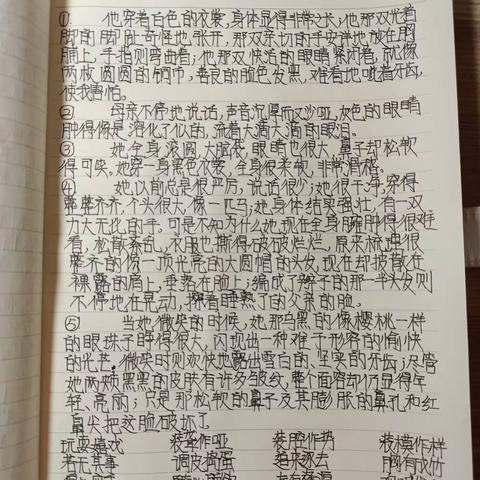 ① 他穿着白色的衣裳,身体显得非常之长;他那双光着
脚的脚趾奇怪地张开,那双亲切的手安详地放在胸
脯上,手指则弯曲着;他那双快活的眼睛紧闭着,就像
两枚圆圆的铜币,善良的脸色发黑,难看地呲着牙齿,
使我害怕。
② 母亲不停地说话,声音沉厚而又沙哑,灰色的眼睛
肿得像是溶化了似的,流着大滴大滴的眼泪。
③ 她全身滚圆,大脑袋,眼睛也很大,鼻子却松软
得可笑。她穿一身黑色衣裳,全身很柔软,非常
④ 她以前总是很严厉,说话很少;她很干净,穿得
整整齐齐,个头很大,像一匹马;她身体结实强壮,有一双
力大无比的手。可是不知为什么她现在全身臃肿得很难
看,松散紊乱,衣服也撕得破破烂烂,原来梳理很
整齐的像一顶光亮的大圆帽的头发,现在却披散在
裸露的肩上,垂落在脸上;编成了辫子的那一半头发则
不停地在晃动,擦着睡熟了的父亲的脸。
⑤ 当她微笑的时候,她那乌黑的像樱桃一样
的眼珠子睁得很大,闪现出一种难于形容的愉快
的光芒,微笑时则欢快地露出雪白的、坚实的牙齿;尽管
她两颊黑黑的皮肤有许多皱纹,整个面容却仍显得年
轻、亮丽;只是那松软的鼻子及其膨胀的鼻孔和红
鼻尖把这脸破坏了
玩耍嬉戏 装聋作哑 装腔作势 装模作样
若无其事 调皮捣蛋 追来逐去 胸有成竹